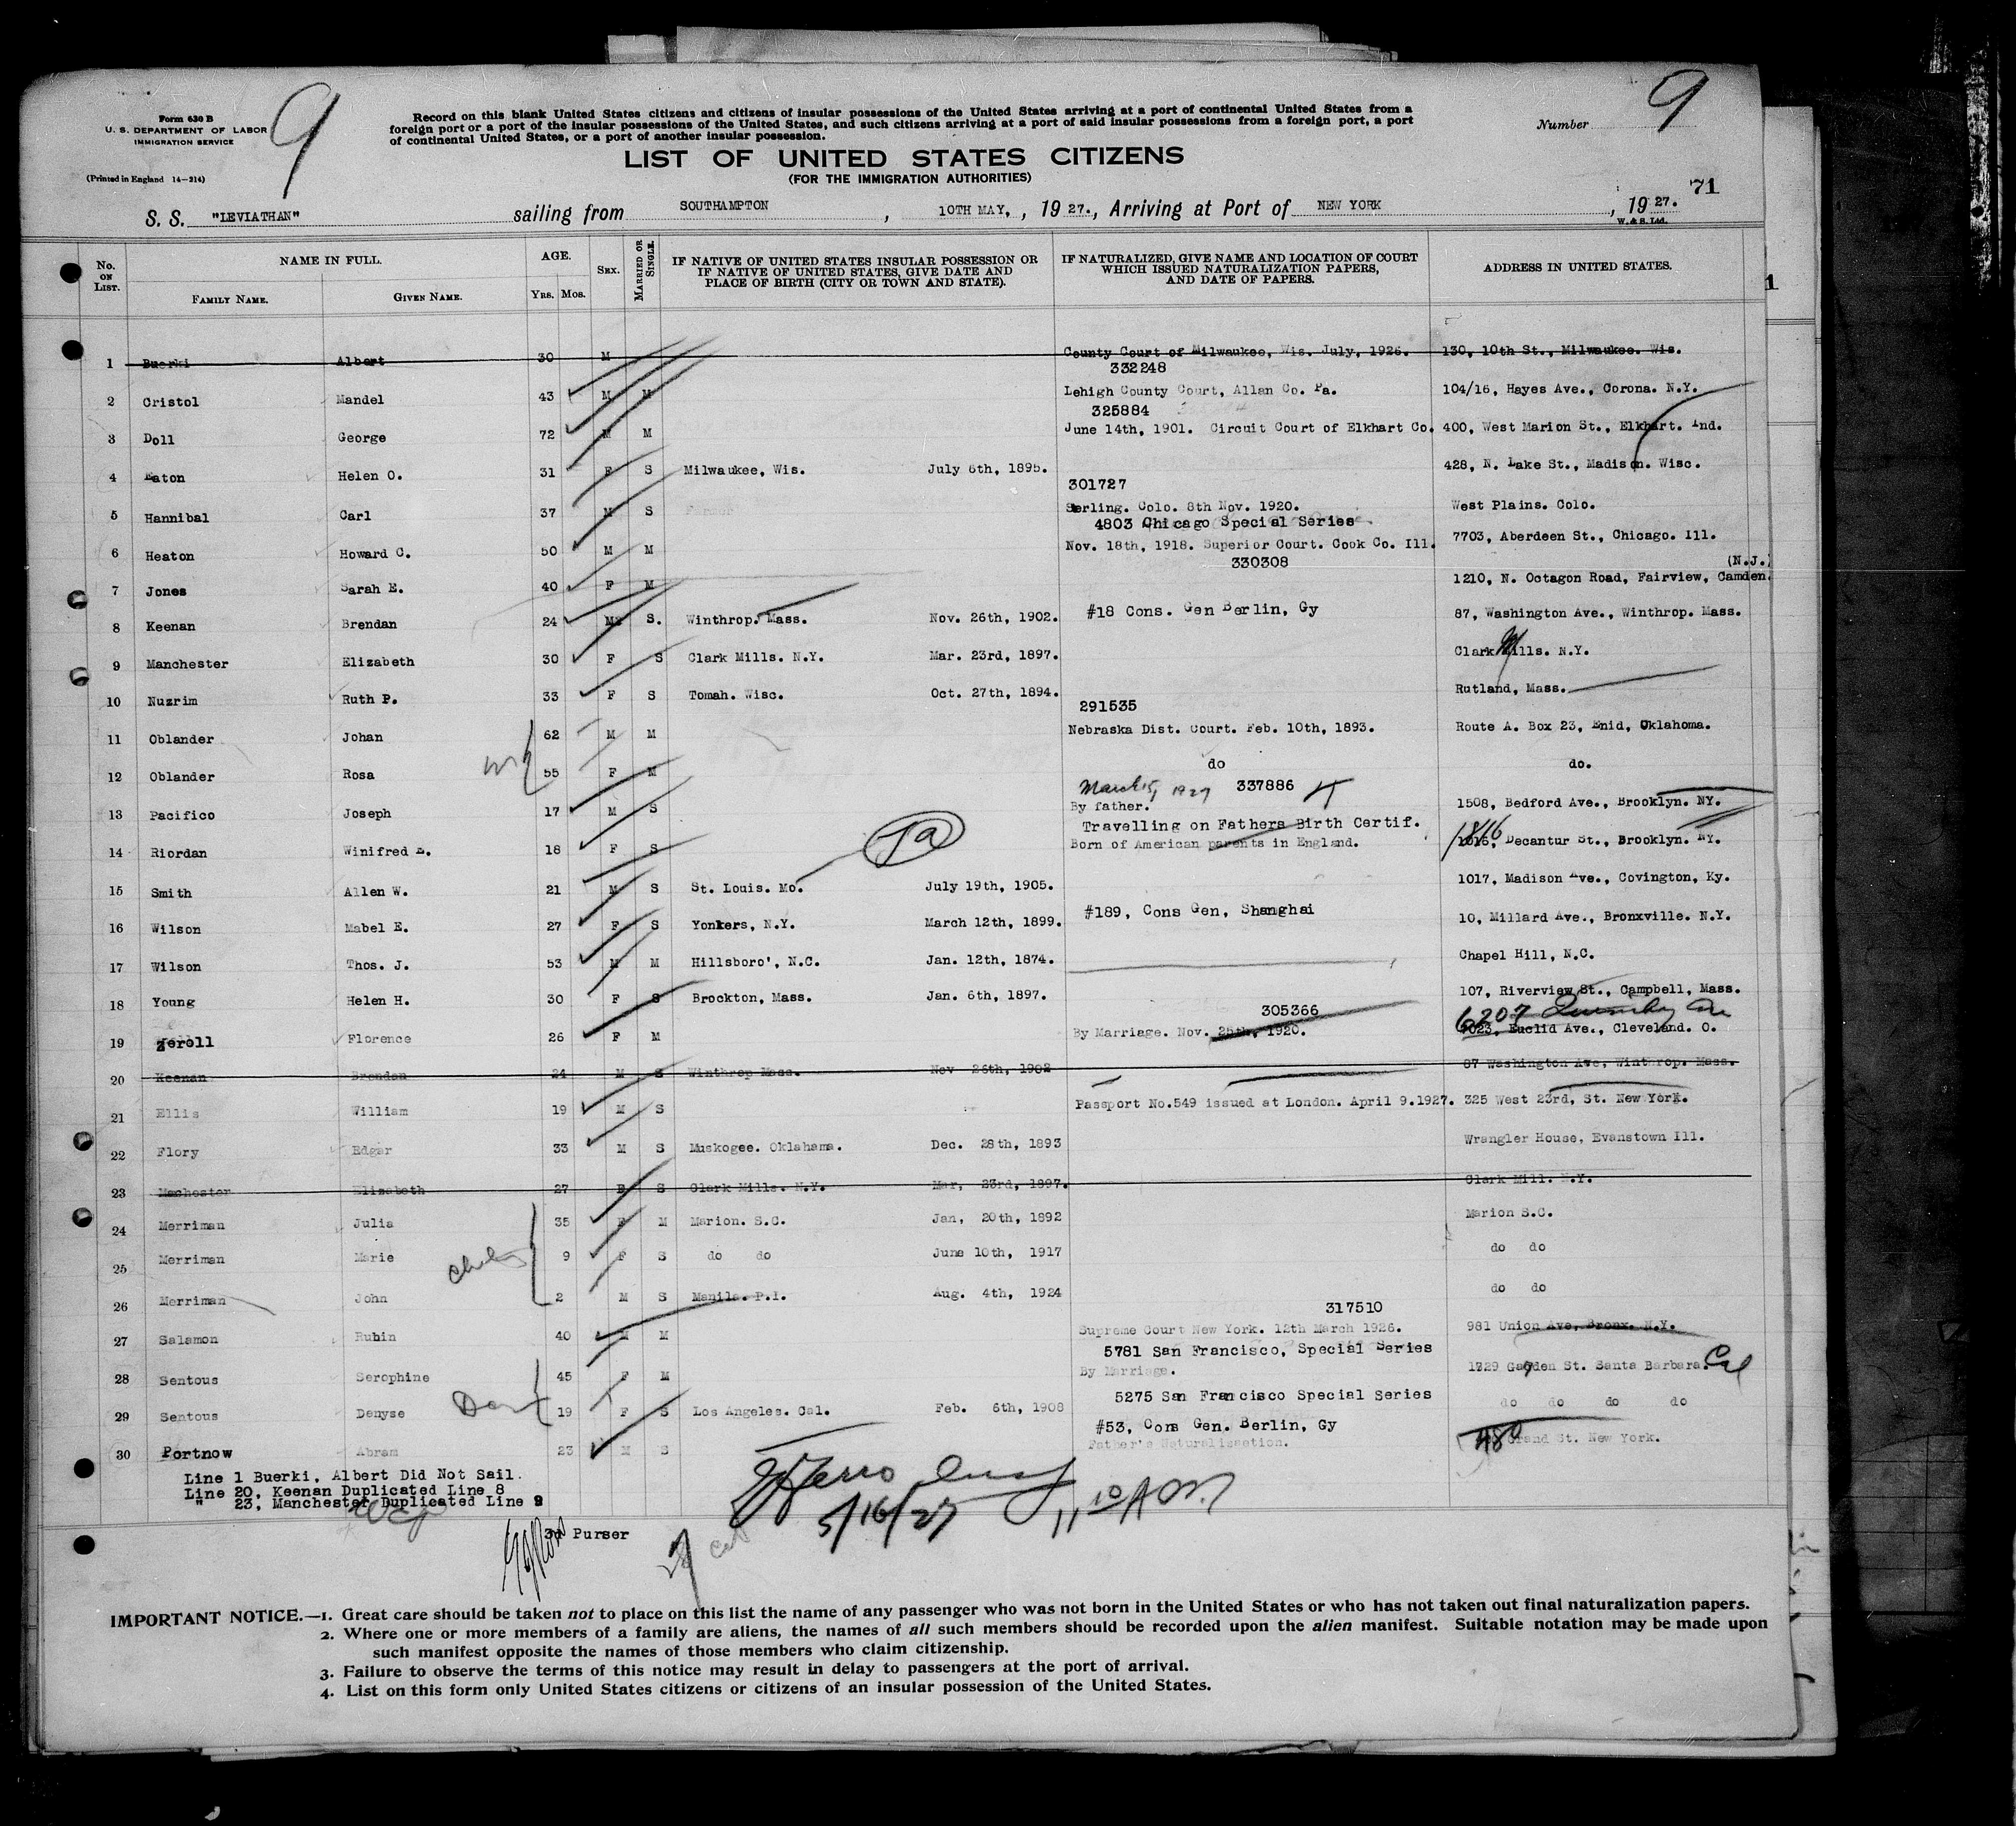 9
9
Form 630 B
U. S. DEPARTMENT OF LABOR
IMMIGRATION SERVICE
(Printed in England 14-214)
Record on this blank United States citizens and citizens of insular possessions of the United States arriving at a port of continental United States from a
foreign port or a port of the insular possessions of the United States, and such citizens arriving at a port of said insular possessions from a foreign port, a port
of continental United States, or a port of another insular possession.
Number
LIST OF UNITED STATES CITIZENS
(FOR THE IMMIGRATION AUTHORITIES)
71
S. S. "LEVIATHAN" sailing from SOUTHAMPTON, 10TH MAY, , 1927., Arriving at Port of NEW YORK, 1927.
W. & S. Ltd.
No. ON LIST. NAME IN FULL. AGE. SEX. MARRIED OR SINGLE. IF NATIVE OF UNITED STATES INSULAR POSSESSION OR IF NATIVE OF UNITED STATES, GIVE DATE AND PLACE OF BIRTH (CITY OR TOWN AND STATE). IF NATURALIZED, GIVE NAME AND LOCATION OF COURT WHICH ISSUED NATURALIZATION PAPERS, AND DATE OF PAPERS. ADDRESS IN UNITED STATES.
FAMILY NAME. GIVEN NAME. YRS. MOS.
1 Buerki Albert 30 M County Court of Milwaukee, Wis. July, 1926. 130, 10th St., Milwaukee. Wis.
332248
2 Cristol Mandel 43 M M Lehigh County Court, Allan Co. Pa. 104/16, Hayes Ave., Corona. N.Y.
325884
3 Doll George 72 M M June 14th, 1901. Circuit Court of Elkhart Co. 400, West Marion St., Elkhart. Ind.
4 Eaton Helen O. 31 F S Milwaukee, Wis. July 6th, 1895. 428, N. Lake St., Madison. Wisc.
301727
5 Hannibal Carl 37 M S Serling. Colo. 8th Nov. 1920. West Plains. Colo.
4803 Chicago Special Series
6 Heaton Howard C. 50 M M Nov. 18th, 1918. Superior Court. Cook Co. Ill. 7703, Aberdeen St., Chicago. Ill.
330308 (N.J.)
7 Jones Sarah E. 40 F M 1210, N. Octagon Road, Fairview, Camden.
8 Keenan Brendan 24 M S. Winthrop. Mass. Nov. 26th, 1902. #18 Cons. Gen Berlin, Gy 87, Washington Ave., Winthrop. Mass.
9 Manchester Elizabeth 30 F S Clark Mills. N.Y. Mar. 23rd, 1897. Clark Mills. N.Y.
10 Nuzrim Ruth P. 33 F S Tomah. Wisc. Oct. 27th, 1894. Rutland, Mass.
291535
11 Oblander Johan 62 M M Nebraska Dist. Court. Feb. 10th, 1893. Route A. Box 23, Enid, Oklahoma.
12 Oblander Rosa 55 F M do do.
March 15, 1927 337886
13 Pacifico Joseph 17 M S By father. 1508, Bedford Ave., Brooklyn. NY.
Travelling on Fathers Birth Certif.
1816
14 Riordan Winifred E. 18 F S Born of American parents in England. Decantur St., Brooklyn. NY.
15 Smith Allen W. 21 M S St. Louis. Mo. July 19th, 1905. 1017, Madison Ave., Covington, Ky.
16 Wilson Mabel E. 27 F S Yonkers, N.Y. March 12th, 1899. #189, Cons Gen, Shanghai 10, Millard Ave., Bronxville. N.Y.
17 Wilson Thos. J. 53 M M Hillsboro', N.C. Jan. 12th, 1874. Chapel Hill, N.C.
18 Young Helen H. 30 F S Brockton, Mass. Jan. 6th, 1897. 107, Riverview St., Campbell, Mass.
305366 6207 Quimby Ave
19 Zeroll Florence 26 F M By Marriage. Nov. 25th, 1920. Euclid Ave., Cleveland. O.
20 Keenan Brendan 24 M S Winthrop Mass. Nov 26th, 1902 87 Washington Ave, Winthrop. Mass.
21 Ellis William 19 M S Passport No.549 issued at London. April 9.1927. 325 West 23rd, St. New York.
22 Flory Edgar 33 M S Muskogee. Oklahama. Dec. 28th, 1893 Wrangler House, Evanstown Ill.
23 Machester Elizabeth 27 F S Clark Mills. N.Y. Mar, 23rd, 1897. Clark Mill. N.Y.
24 Merriman Julia 35 F M Marion. S.C. Jan, 20th, 1892 Marion S.C.
25 Merriman Marie 9 F S do do June 10th, 1917 do do
26 Merriman John 2 M S Manila. P.I. Aug. 4th, 1924 do do
317510
27 Salamon Rubin 40 M M Supreme Court New York. 12th March 1926. 981 Union Ave, Bronx. N.Y.
5781 San Francisco, Special Series
28 Sentous Serophine 45 F M By Marriage. 1729 Garden St. Santa Barbara. Cal
5275 San Francisco Special Series
29 Sentous Denyse 19 F S Los Angeles. Cal. Feb. 6th, 1908 do do do do
#53, Cons Gen. Berlin, Gy
30 Portnow Abram 23 M S Father's Naturalisation. 480 Grand St. New York.
Line 1 Buerki, Albert Did Not Sail.
Line 20, Keenan Duplicated Line 8
" 23, Manchester Duplicated Line 9
5/16/27 11 10 AM
3d Purser
IMPORTANT NOTICE.—1. Great care should be taken not to place on this list the name of any passenger who was not born in the United States or who has not taken out final naturalization papers.
2. Where one or more members of a family are aliens, the names of all such members should be recorded upon the alien manifest. Suitable notation may be made upon
such manifest opposite the names of those members who claim citizenship.
3. Failure to observe the terms of this notice may result in delay to passengers at the port of arrival.
4. List on this form only United States citizens or citizens of an insular possession of the United States.